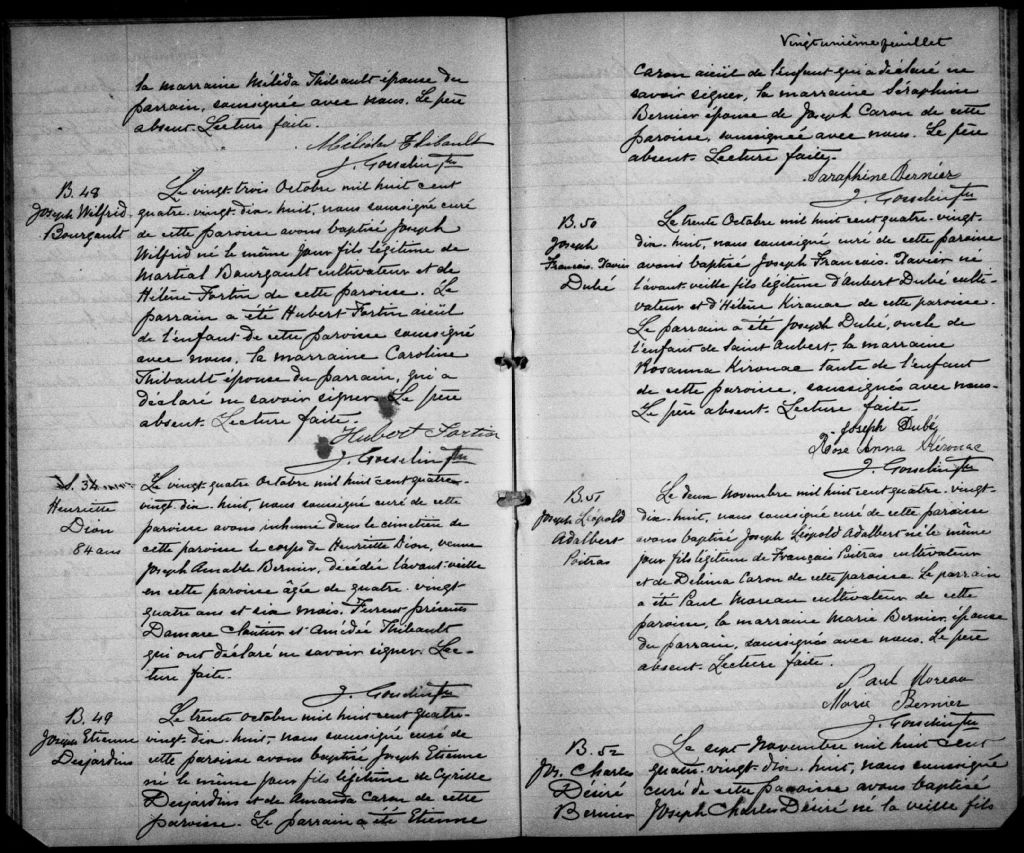 la marraine Méléda Thibault épouse du
parrain, soussignée avec nous. Le père
absent. Lecture faite.
Thibault
J. Gosselin Ptre
B. 48
Joseph Wilfrid
Bourgault
Le vingt-trois Octobre mil huit cent
quatre-vingt-dix-huit, nous soussigné curé
de cette paroisse avons baptisé Joseph
Wilfrid né le même jour fils légitime de
Martial Bourgault cultivateur et de
Hélène Fortin de cette paroisse. Le
parrain a été Hubert Fortin aïeul
de l'enfant de cette paroisse soussigné
avec nous, la marraine Caroline
Thibault épouse du parrain, qui a
déclaré ne savoir signer. Le père
absent. Lecture faite.
Hubert Fortin
J. Gosselin Ptre
S. 34
Henriette
Dion
84 ans
Le vingt-quatre Octobre mil huit cent quatre-
vingt-dix-huit, nous soussigné curé de cette
paroisse avons inhumé dans le cimetière de
cette paroisse le corps de Henriette Dion, veuve
Joseph Amable Bernier, décédée l'avant-veille
en cette paroisse âgée de quatre-vingt
quatre ans et six mois. Furent présents
Damase Cloutier et Amédée Thibault
qui ont déclaré ne savoir signer. Lec-
ture faite.
J. Gosselin Ptre
B. 49
Joseph Etienne
Desjardins
Le trente octobre mil huit cent quatre-
vingt-dix-huit, nous soussigné curé de
cette paroisse avons baptisé Joseph Etienne
né le même jour fils légitime de Cyrille
Desjardins et de Amanda Caron de cette
paroisse. Le parrain a été Etienne
Vingt unième feuillet
Caron aïeul de l'enfant qui a déclaré ne
savoir signer, la marraine Séraphine
Bernier épouse de Joseph Caron de cette
paroisse, soussignée avec nous. Le père
absent. Lecture faite.
Saraphine Bernier
J. Gosselin Ptre
B. 50
Joseph
François-Xavier
Dubé
Le trente Octobre mil huit cent quatre-vingt-
dix-huit, nous soussigné curé de cette paroisse
avons baptisé Joseph François-Xavier né
l'avant-veille fils légitime d'Aubert Dubé culti-
vateur et d'Hélène Kirouac de cette paroisse.
Le parrain a été Joseph Dubé, oncle de
l'enfant de Saint Aubert, la marraine
Rosanna Kirouac tante de l'enfant
de cette paroisse, soussignés avec nous.
Le père absent. Lecture faite.
Joseph Dubé
Rose Anna Kérouac
J. Gosselin Ptre
B. 51
Joseph Léopold
Adalbert
Poitras
Le deux Novembre mil huit cent quatre-vingt-
dix-huit, nous soussigné curé de cette paroisse
avons baptisé Joseph Léopold Adalbert né le même
jour fils légitime de François Poitras cultivateur
et de Délima Caron de cette paroisse. Le parrain
a été Paul Moreau cultivateur de cette
paroisse, la marraine Marie Bernier épouse
du parrain, soussignés avec nous. Le père
absent. Lecture faite.
Paul Moreau
Marie Bernier
J. Gosselin Ptre
B. 52
Jos. Charles
Désiré
Bernier
Le sept Novembre mil huit cent
quatre-vingt-dix-huit, nous soussigné
curé de cette paroisse avons baptisé
Joseph Charles Désiré né la veille fils